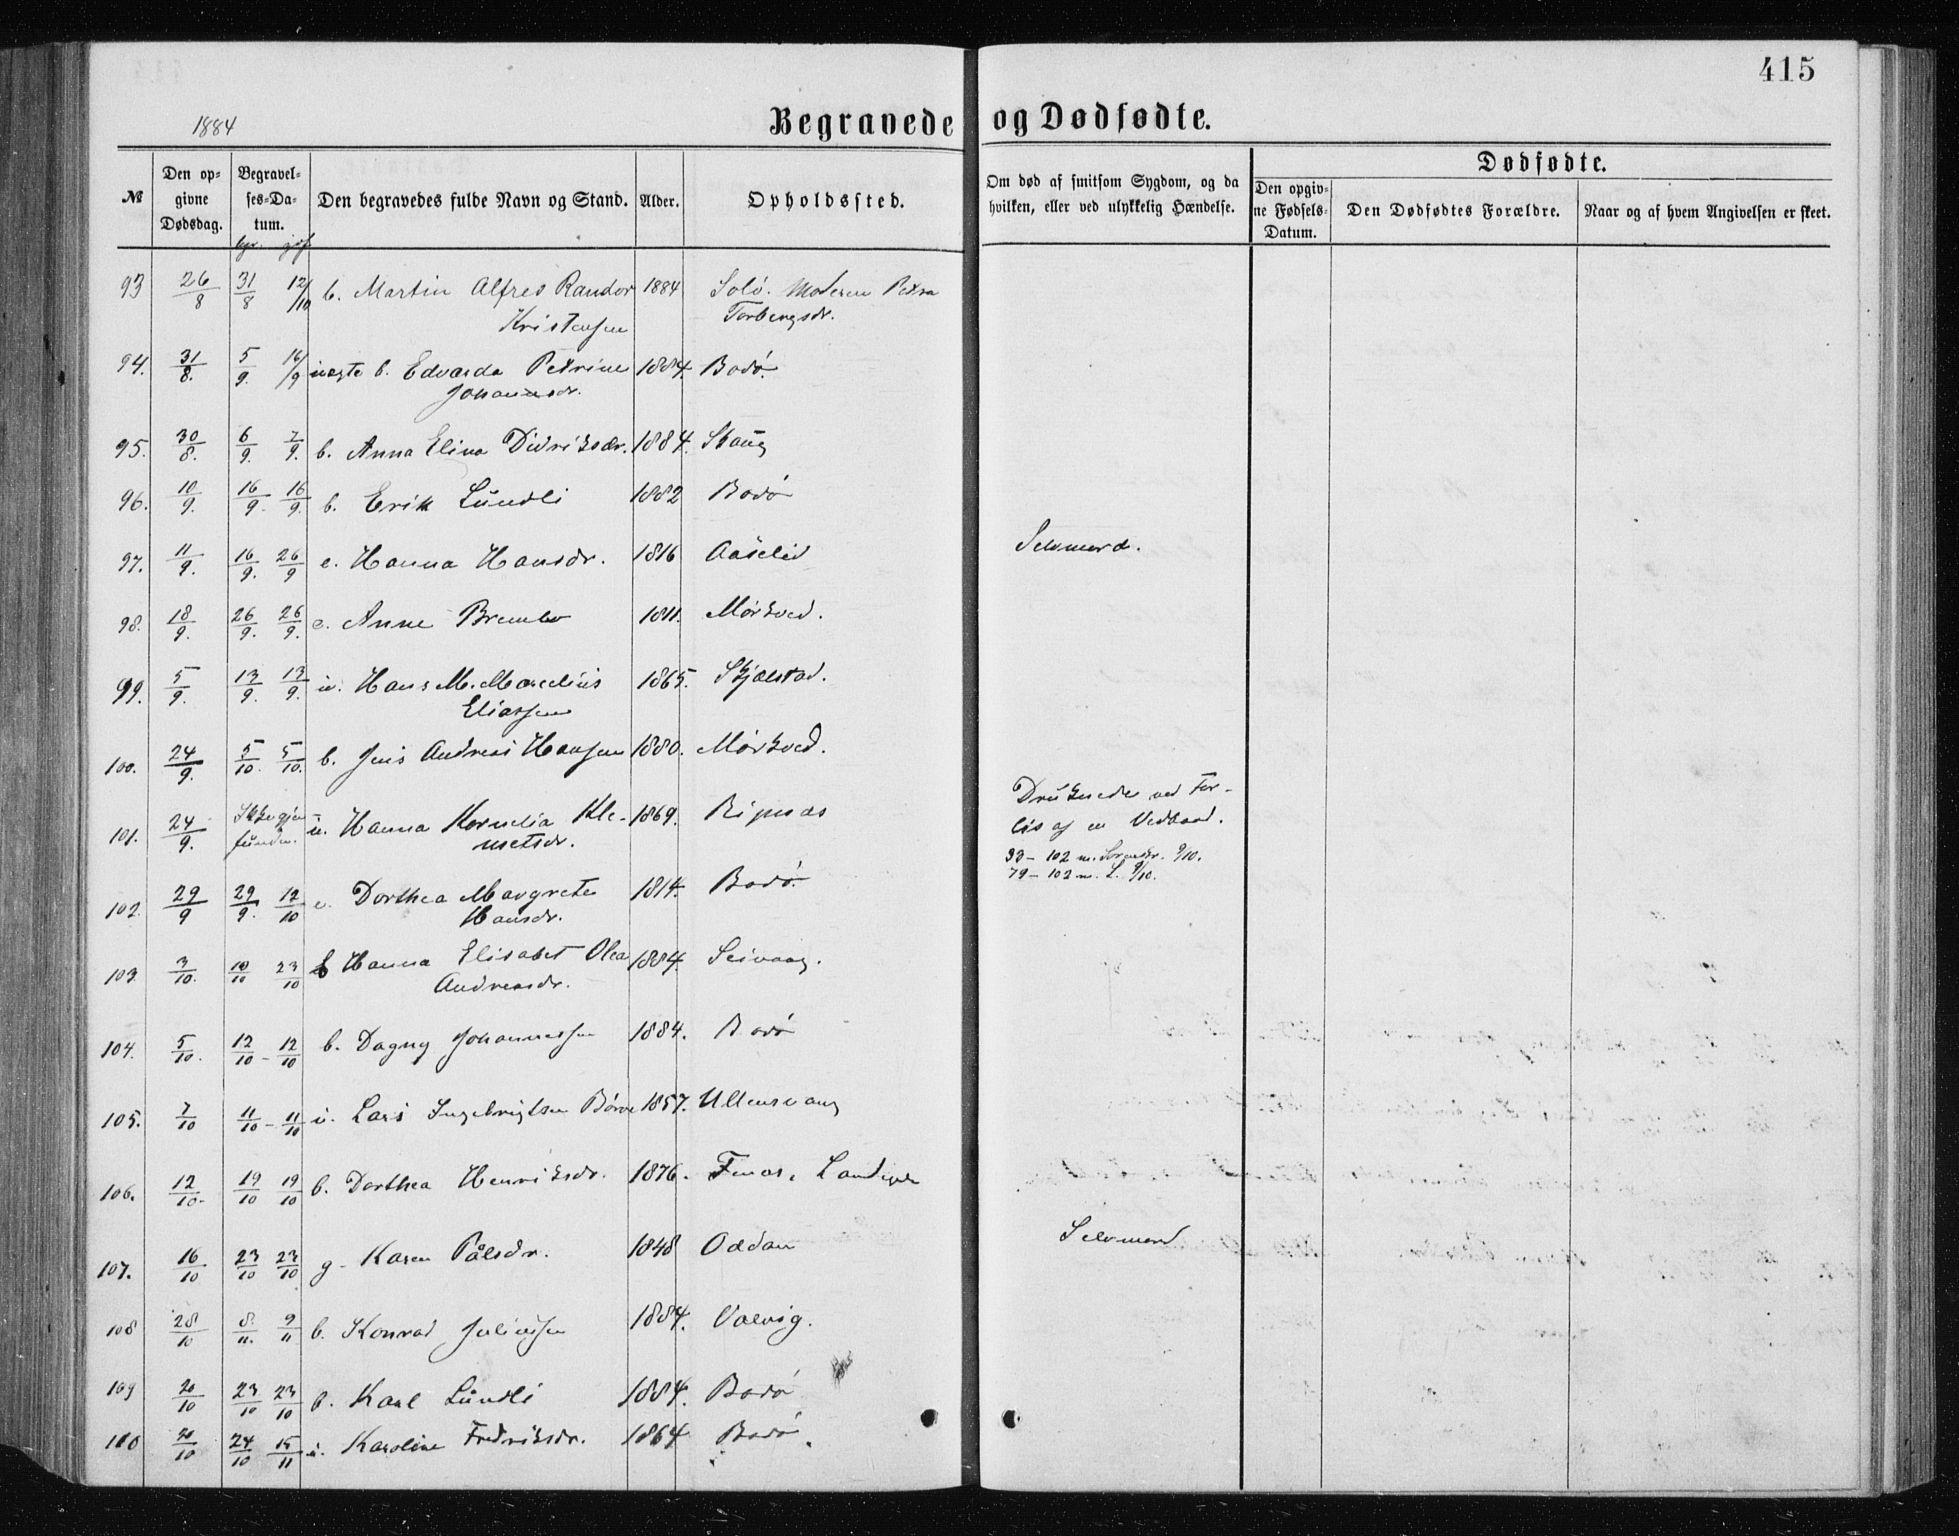 415
1884
Begravede og Dødfødte.
Dødfødte.
№
Den op-
givne
Dødsdag.
Begravel-
ses-Da-
tum.
Den begravedes fulde Navn og Stand.
Alder.
Opholdssted.
Om død af smitsom Sygdom, og da
hvilken, eller ved ulykkelig Hændelse.
Den opgiv-
ne Fødsels-
Datum.
Den Dødfødtes Forældre.
Naar og af hvem Angivelsen er skeet.
93 26/8 31/8 12/10 b. Martin Alfred Randor 1884 Solø. Moderen Petra
Kristensen Torbergsdr.
94. 31/8. 5/9. 16/9 uægte b. Edvarda Petrine 1884. Bodø.
Johannsdr.
95. 30/8. 6/9. 7/9. b. Anna Elina Didriksdr. 1884. Skaug
96. 10/9. 16/9. 16/9. b. Erik Lundli 1882 Bodø
97. 11/9. 16/9. 26/9 e. Hanna Hansdr. 1816 Aaselid Selvmord.
98. 18/9. 26/9. 26/9. e. Anne Brembo 1811. Mørkved.
99. 5/9. 13/9. 13/9. u. Hans M. Marelius 1865. Skjælstad.
Eliassen
100. 24/9. 5/10. 5/10. b. Jens Andreas Hansen 1880. Mørkved.
101. 24/9. Ikke gjen- u. Hanna Kornelia Kle- 1869. Ripnæs Druknede ved For-
funden. metsdr. lis af en Vedbaad.
33 - 102 m. Sorenskr. 9/10.
79 - 102 m. L. 9/10.
102. 29/9 29/9. 12/10 e. Dorthea Margrete 1814. Bodø.
Hansdr.
103. 3/10. 10/10 23/10 b Hanna Elisabet Olea 1884. Seivaag.
Andreasdr.
104. 5/10. 12/10 - 12/10 b. Dagny Johannessen 1884. Bodø
105. 7/10 11/10 - 11/10 u. Lars Ingebrigtsen Børve 1857. Ullensvang
106. 12/10. 19/10 19/10 b. Dorthea Henriksdr. 1876. Fenes, Landego
107. 16/10 23/10 23/10 g. Karen Pålsdr. 1848 Oddan Selvmord
108 28/10 8./11. 9/11 b. Konrad Juliussen 1884. Valvig.
109 20/10 23/10 23/10 b. Karl Lundli 1884. Bodø
110 20/10 24/10 15/11 u. Karoline Fredriksdr. 1864 Bodø.